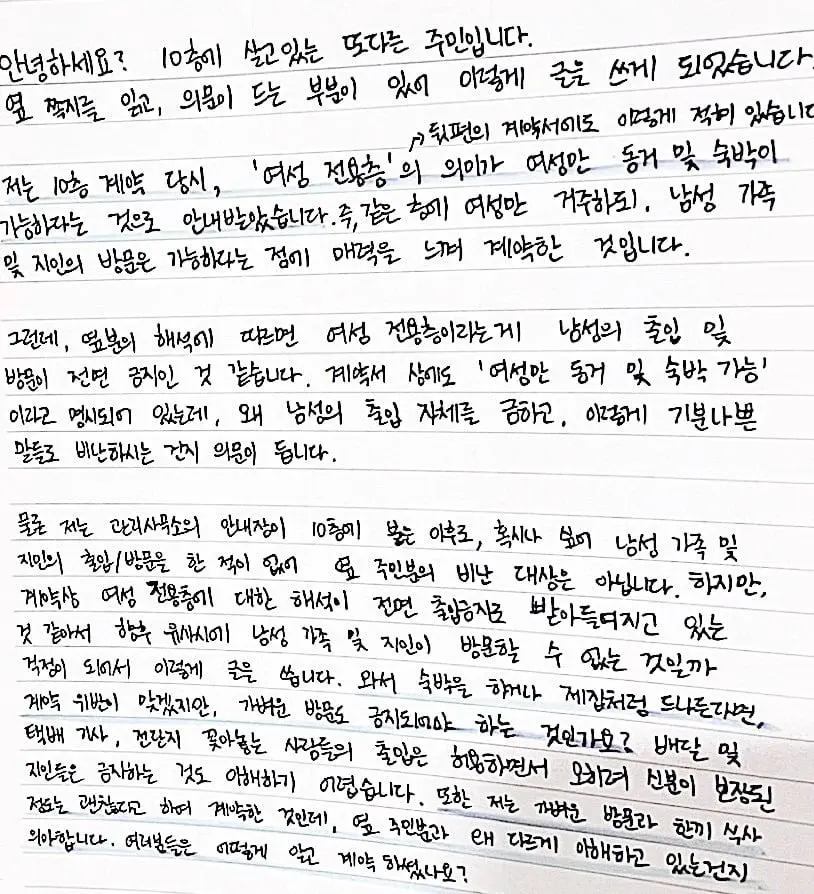 안녕하세요? 10층에 살고있는 또다른 주민입니다.
옆 쪽지를 읽고, 의문이 드는 부분이 있어 이렇게 글을 쓰게 되었습니다.
→ 뒷편의 계약서에도 이렇게 적혀 있습니다
저는 10층 계약 당시, '여성 전용층'의 의미가 여성만 동거 및 숙박이
가능하다는 것으로 안내받았습니다. 즉, 같은 층에 여성만 거주하되, 남성 가족
및 지인의 방문은 가능하다는 점에 매력을 느껴 계약한 것입니다.
그런데, 옆분의 해석에 따르면 여성 전용층이라는게 남성의 출입 및
방문이 전면 금지인 것 같습니다. 계약서 상에도 '여성만 동거 및 숙박 가능'
이라고 명시되어 있는데, 왜 남성의 출입 자체를 금하고, 이렇게 기분나쁜
말들로 비난하시는 건지 의문이 듭니다.
물론 저는 관리사무소의 안내장이 10층에 붙은 이후로, 혹시나 싶어 남성 가족 및
지인의 출입/방문을 한 적이 없어 옆 주민분의 비난 대상은 아닙니다. 하지만,
계약상 여성 전용층에 대한 해석이 전면 출입금지로 받아들여지고 있는
것 같아서 향후 유사시에 남성 가족 및 지인이 방문할 수 없는 것일까
걱정이 되어서 이렇게 글은 씁니다. 와서 숙박을 하거나 제집처럼 드나든다면,
계약 위반이 맞겠지만, 가벼운 방문도 금지되어야 하는 것인가요? 배달 및
택배 기사, 전단지 꽂아놓는 사람들의 출입은 허용하면서 오히려 신분이 보장된
지인들은 금지하는 것도 이해하기 어렵습니다. 또한 저는 가벼운 방문과 한끼 식사
정도는 괜찮다고 하여 계약한 것인데, 옆 주민분과 왜 다르게 이해하고 있는건지
의아합니다. 여러분들은 어떻게 알고 계약 하셨나요?